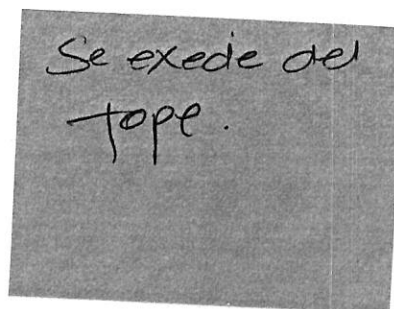 Se exede del
tope.